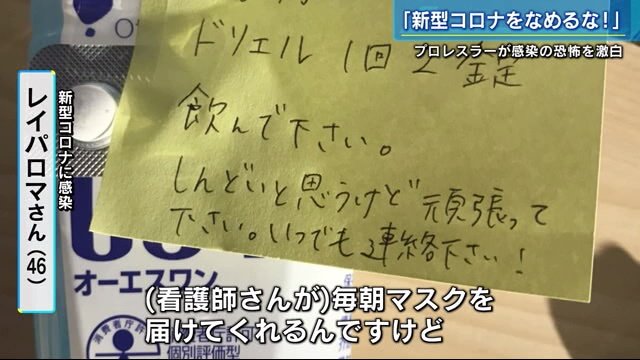 「新型コロナをなめるな！」
プロレスラーが感染の恐怖を激白
ドリエル 1回 2錠
飲んで下さい。
しんどいと思うけど頑張って
下さい。いつでも連絡下さい！
新型コロナに感染
レイパロマさん（46）
オーエスワン
消費者庁許可
個別評価型
（看護師さんが）毎朝マスクを
届けてくれるんですけど